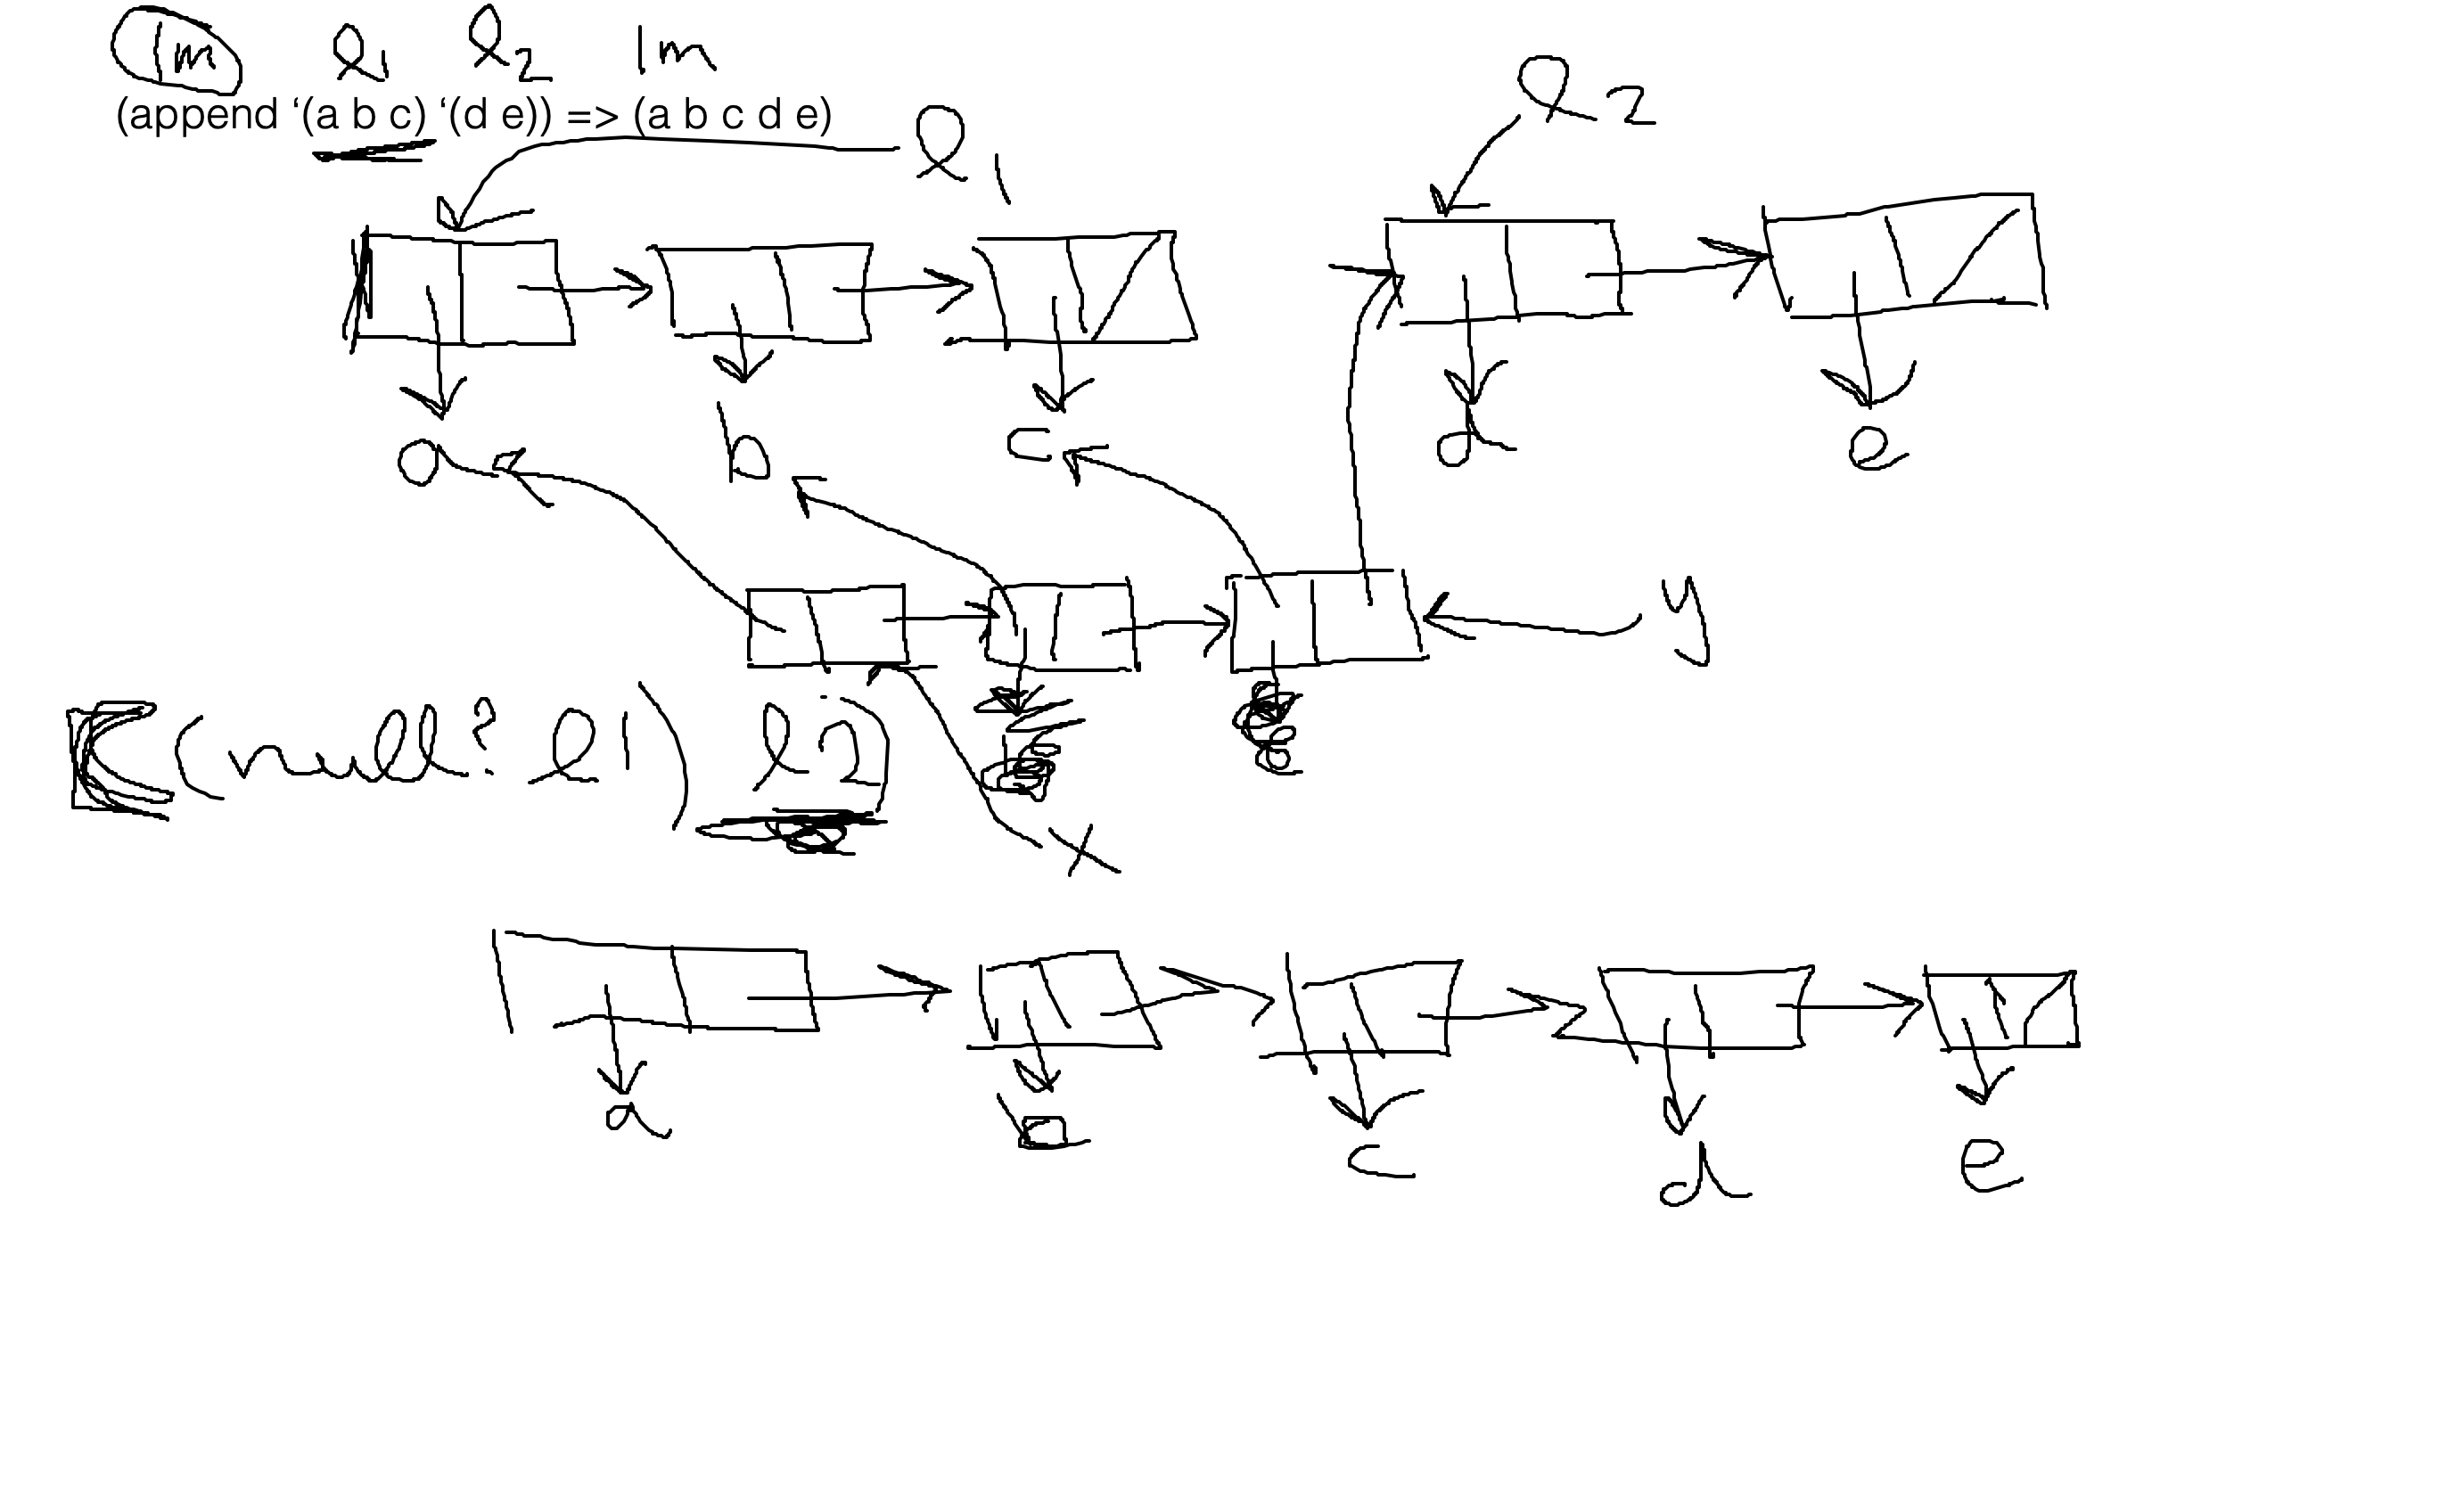 lm l1 l2 lm
(append ‘(a b c) ‘(d e)) => (a b c d e)
l1 l2
a b c d e
y
((null? l1) l2)
x
a b c d e